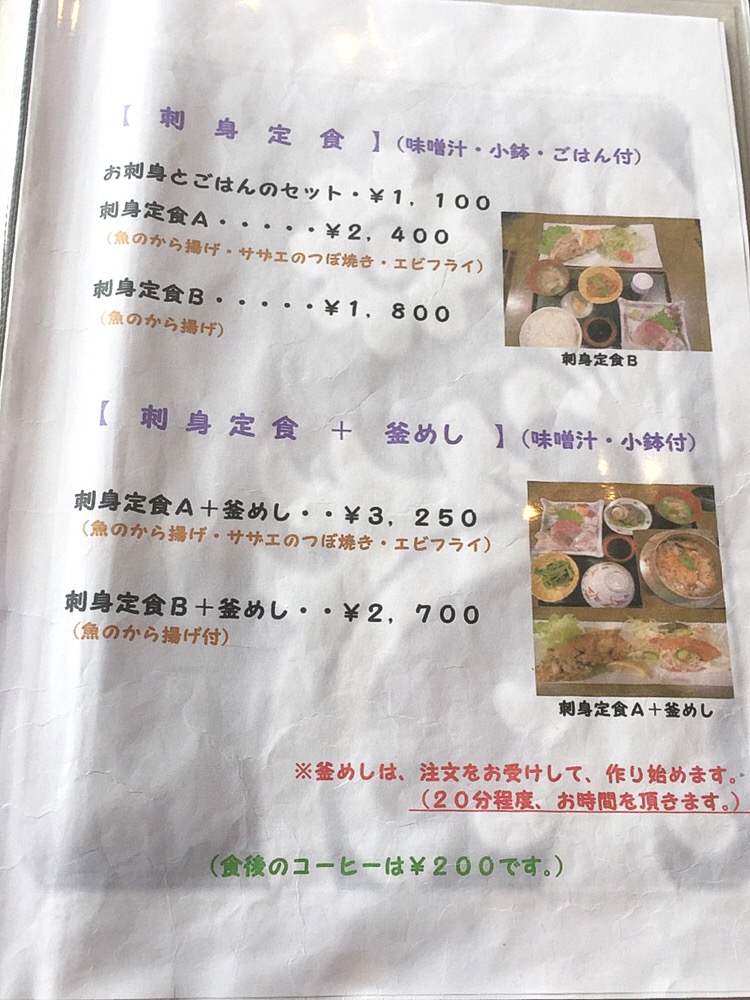 【 刺 身 定 食 】(味噌汁・小鉢・ごはん付)
お刺身とごはんのセット・¥1,100
刺身定食A・・・・・¥2,400
(魚のから揚げ・サザエのつぼ焼き・エビフライ)
刺身定食B・・・・・¥1,800
(魚のから揚げ)
刺身定食B
【 刺 身 定 食 + 釜めし 】(味噌汁・小鉢付)
刺身定食A+釜めし・・¥3,250
(魚のから揚げ・サザエのつぼ焼き・エビフライ)
刺身定食B+釜めし・・¥2,700
(魚のから揚げ付)
刺身定食A+釜めし
※釜めしは、注文をお受けして、作り始めます。
(20分程度、お時間を頂きます。)
(食後のコーヒーは¥200です。)